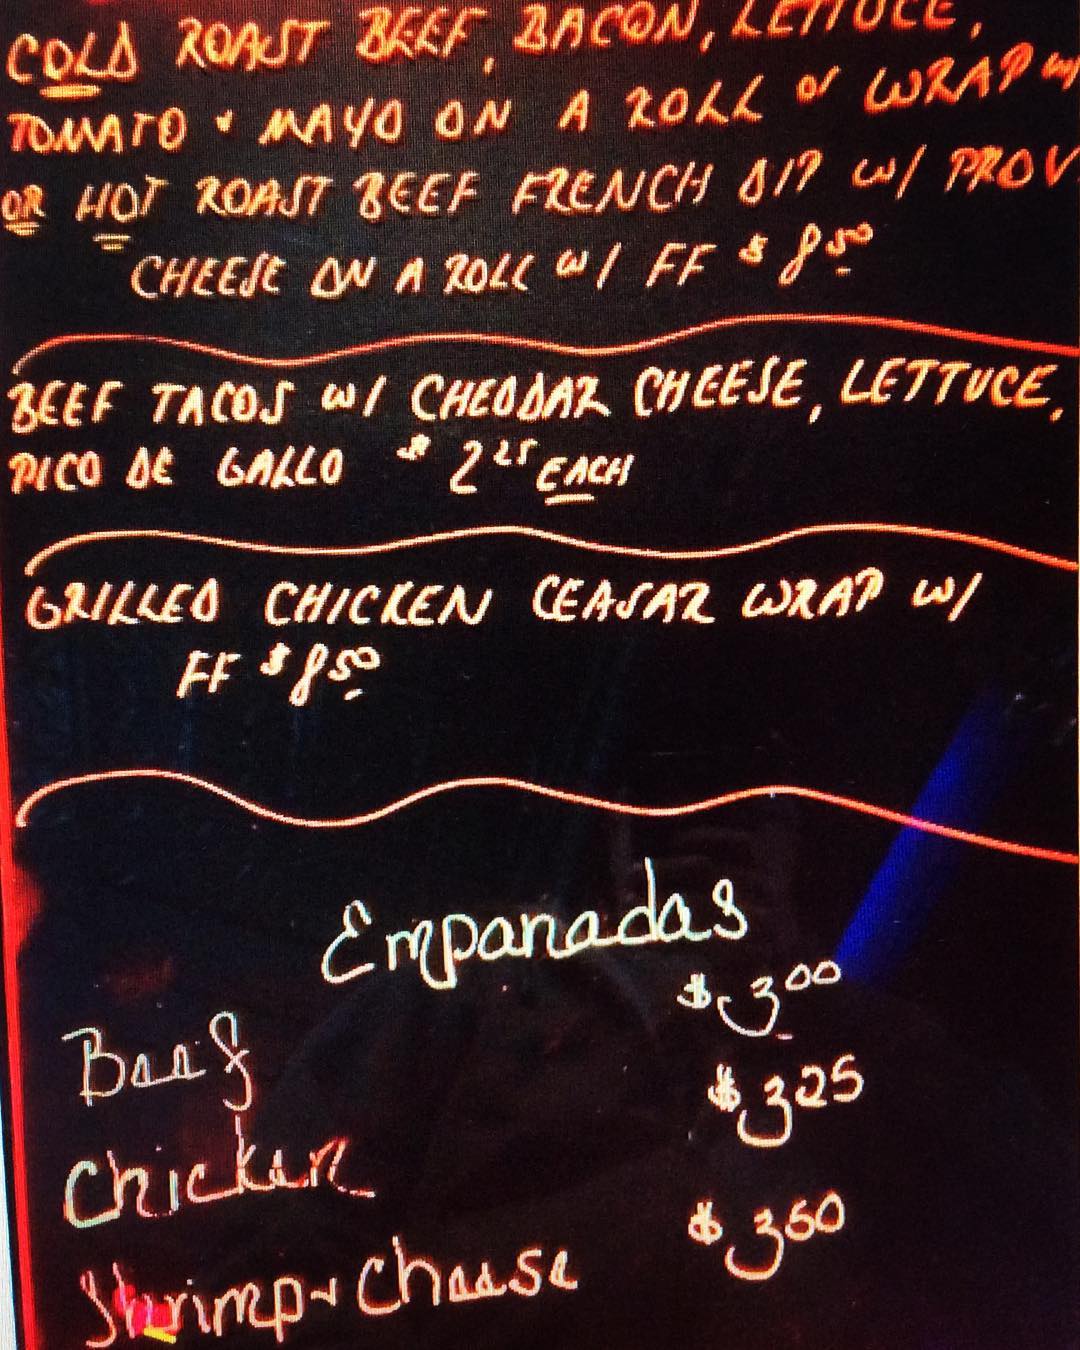 COLD ROAST BEEF, BACON, LETTUCE,
TOMATO + MAYO ON A ROLL or WRAP w/
OR HOT ROAST BEEF FRENCH DIP w/ PROV.
CHEESE ON A ROLL w/ FF $8.50
BEEF TACOS w/ CHEDDAR CHEESE, LETTUCE,
PICO DE GALLO $2.25 EACH
GRILLED CHICKEN CEASAR WRAP w/
FF $8.50
Empanadas
Beef $3.00
Chicken $3.25
Shrimp + Cheese $3.50